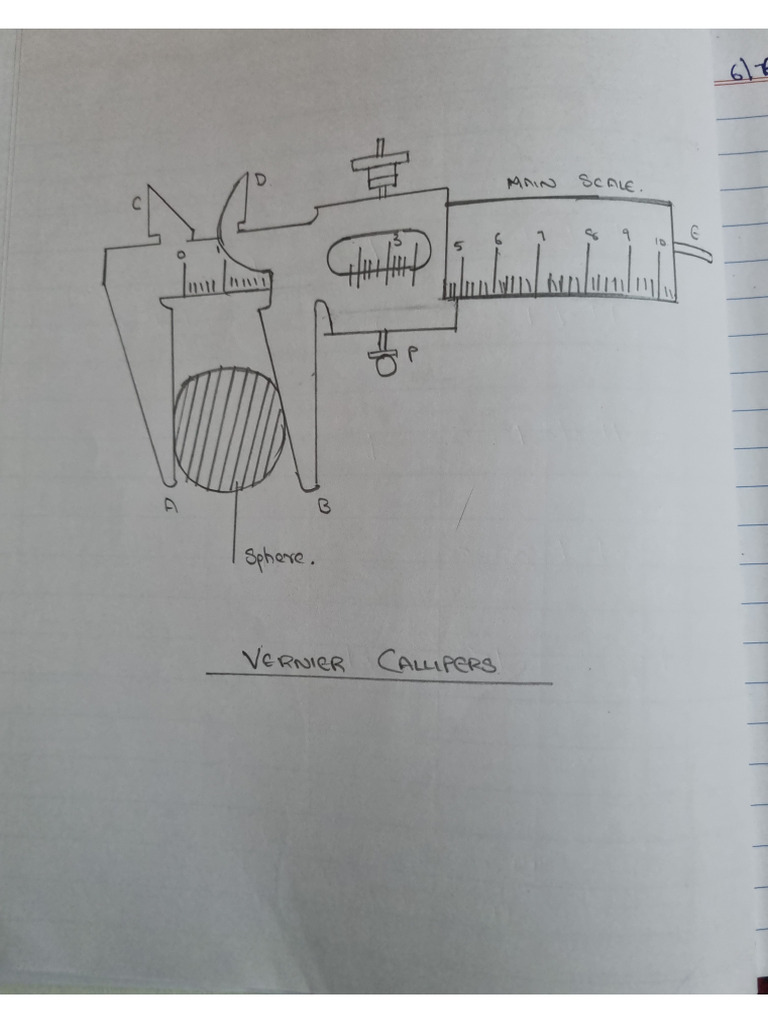 6/
MAIN SCALE.
C
D
0 1
3
5 6 7 8 9 10
E
P
A
B
Sphere.
VERNIER CALLIPERS